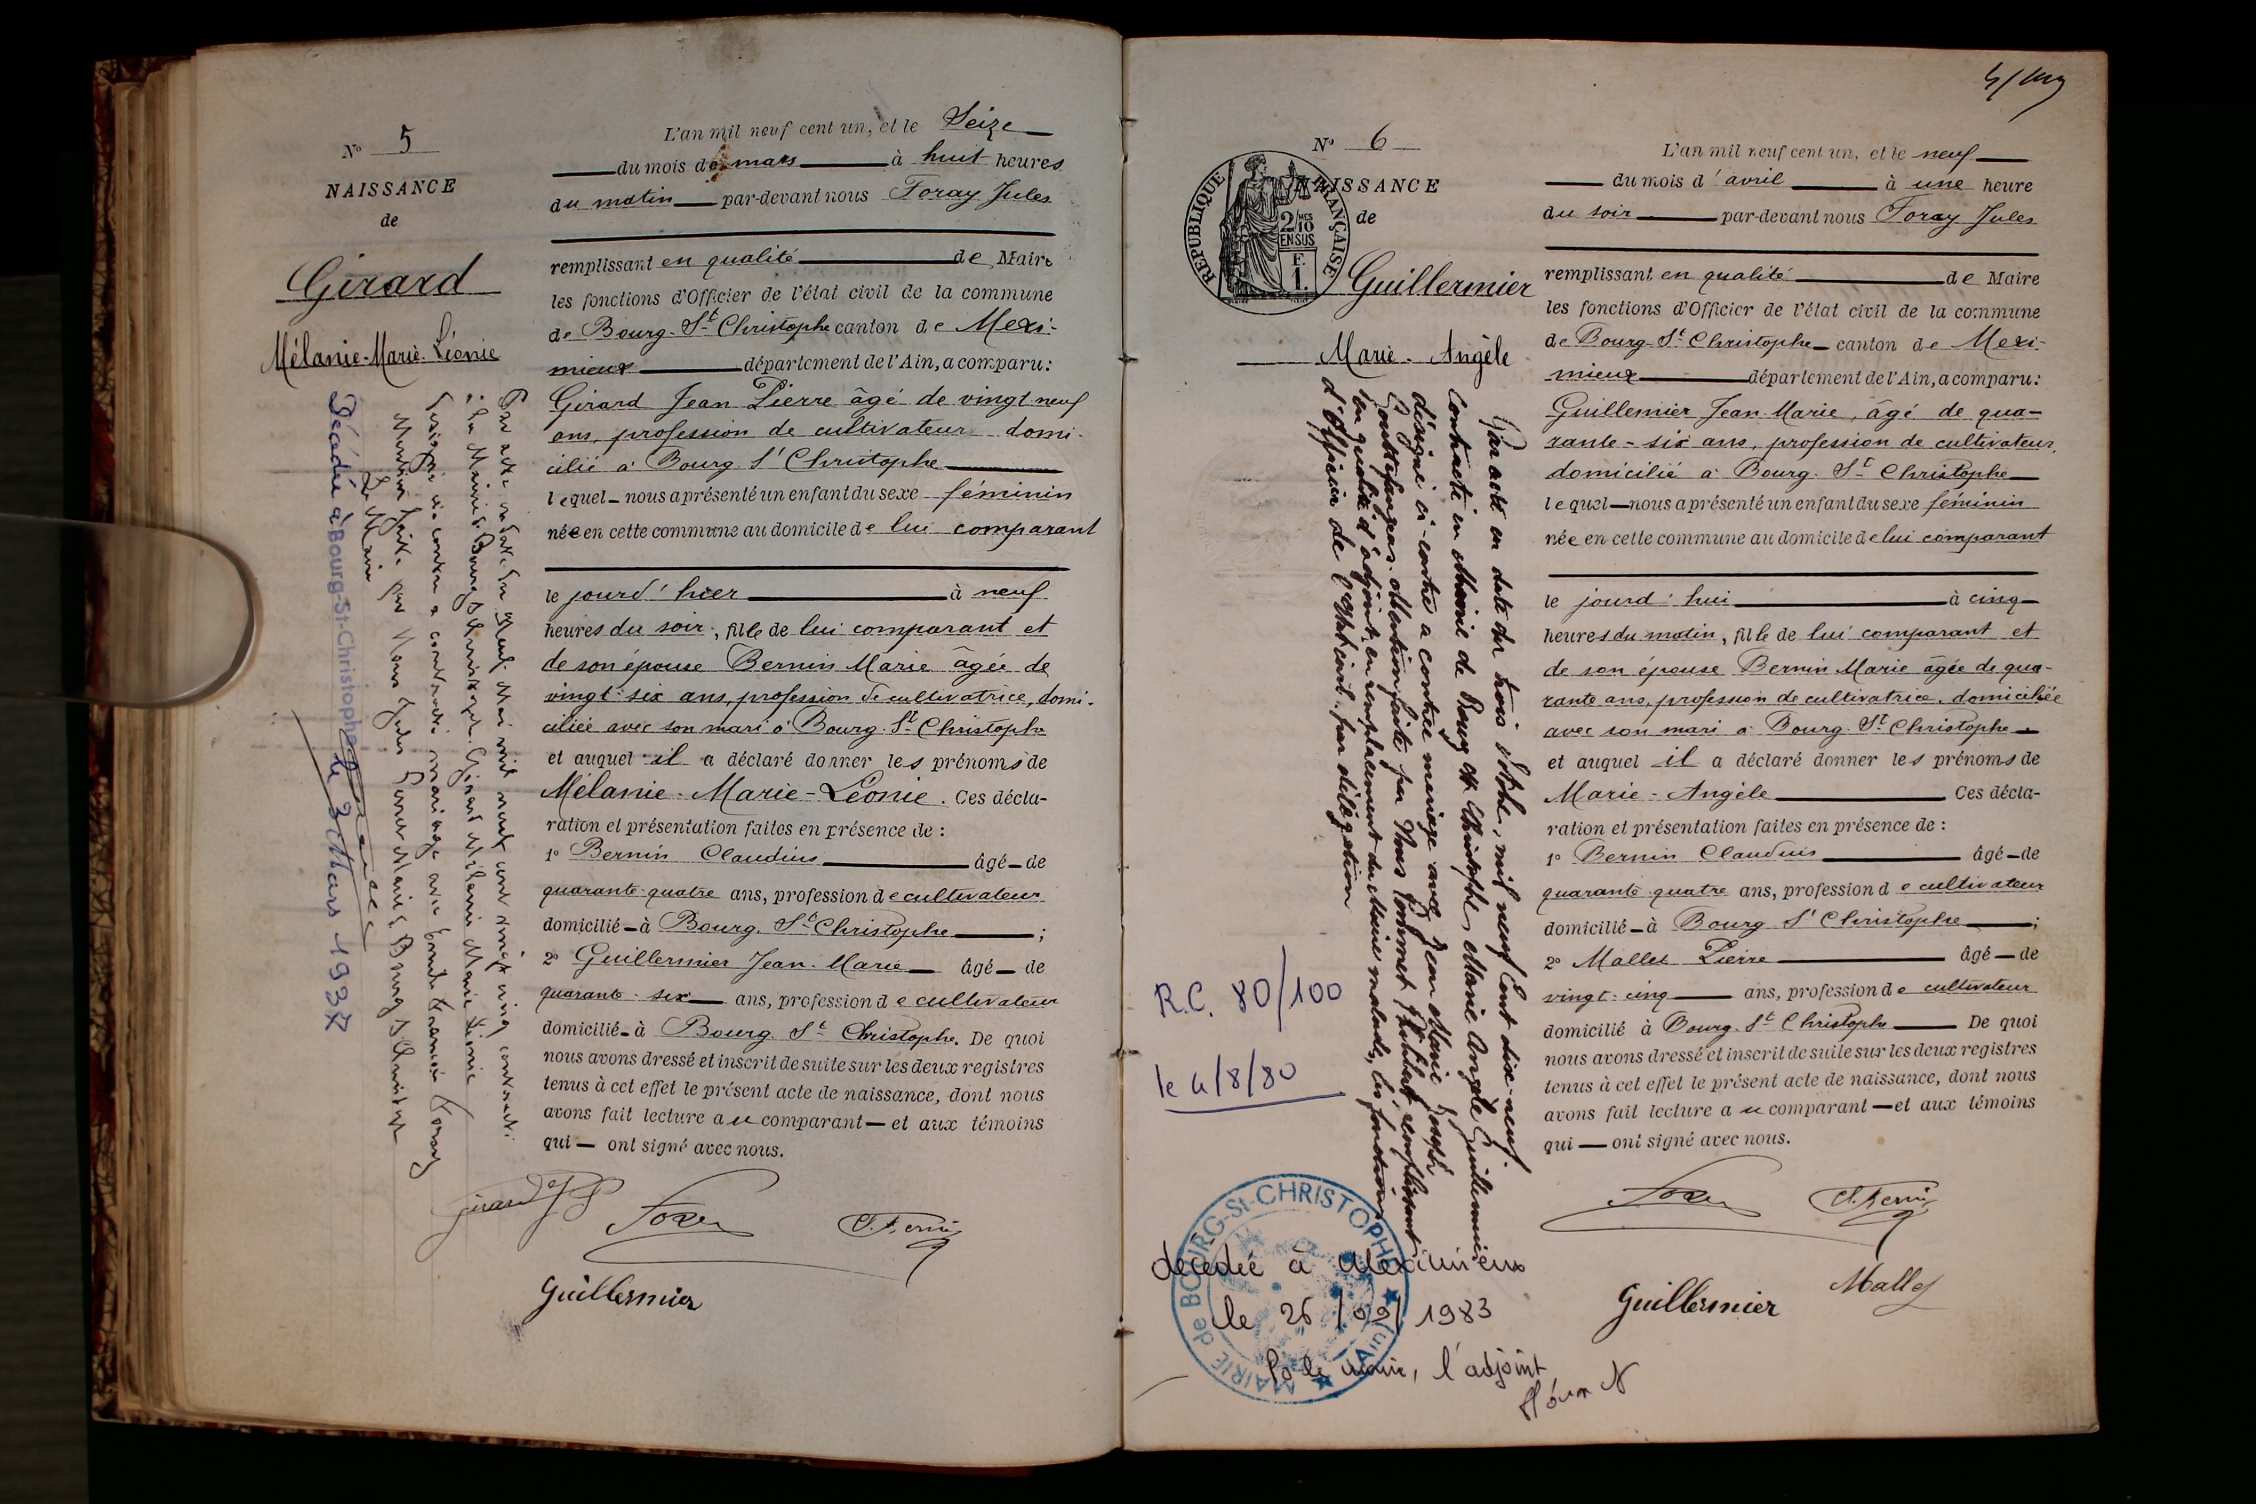 N° 5
NAISSANCE
de
Girard
Mélanie-Marie-Léonie
Par acte en date du neuf Mai mil neuf cent vingt cinq contracté
à la Mairie de Bourg St Christophe Girard Mélanie Marie Léonie
désignée ci-contre a contracté mariage avec
Mention faite par Nous Maire de Bourg St Christophe
Le Maire
Décédée à Bourg-St-Christophe
le 3 Mars 1937
L'an mil neuf cent un, et le Seize
du mois de mars à huit heures
du matin par-devant nous Foray Jules
remplissant en qualité de Maire
les fonctions d'Officier de l'état civil de la commune
de Bourg-St Christophe canton de Mexi-
mieux département de l'Ain, a comparu:
Girard Jean Pierre âgé de vingt neuf
ans, profession de cultivateur domi-
cilié à Bourg St Christophe
lequel nous a présenté un enfant du sexe féminin
née en cette commune au domicile de lui comparant
le jourd'hier à neuf
heures du soir, fille de lui comparant et
de son épouse Bernin Marie âgée de
vingt-six ans, profession de cultivatrice, domi-
ciliée avec son mari à Bourg-St Christophe
et auquel il a déclaré donner les prénoms de
Mélanie-Marie-Léonie. Ces décla-
ration et présentation faites en présence de :
1° Bernin Claudius âgé de
quarante-quatre ans, profession de cultivateur
domicilié à Bourg St Christophe ;
2° Guillermier Jean-Marie âgé de
quarante-six ans, profession de cultivateur
domicilié à Bourg St Christophe. De quoi
nous avons dressé et inscrit de suite sur les deux registres
tenus à cet effet le présent acte de naissance, dont nous
avons fait lecture au comparant et aux témoins
qui ont signé avec nous.
Girard
Foray
C. Bernin
Guillermier
N° 6
NAISSANCE
de
RÉPUBLIQUE FRANÇAISE
2/10
EN SUS
F.
1.
Guillermier
Marie-Angèle
Par acte en date du trois Octobre mil neuf cent dix-neuf.
Contracté en Mairie de Bourg St Christophe Marie Angèle Guillermier
désignée ci-contre a contracté mariage avec Jean Marie Joseph
Mention faite par Nous Pommet Philibert remplissant
en qualité d'adjoint, en remplacement du Maire malade, les fonctions
d'Officier de l'état civil par délégation
R.C. 80/100
le 4/8/80
MAIRIE de BOURG-St-CHRISTOPHE
(Ain)
décédée à Meximieux
le 26/09/1983
Po le maire, l'adjoint
L'an mil neuf cent un, et le neuf
du mois d'avril à une heure
du soir par-devant nous Foray Jules
remplissant en qualité de Maire
les fonctions d'Officier de l'état civil de la commune
de Bourg-St Christophe canton de Mexi-
mieux département de l'Ain, a comparu:
Guillermier Jean-Marie, âgé de qua-
rante-six ans, profession de cultivateur,
domicilié à Bourg-St Christophe
lequel nous a présenté un enfant du sexe féminin
née en cette commune au domicile de lui comparant
le jourd'hui à cinq
heures du matin, fille de lui comparant et
de son épouse Bernin Marie âgée de qua-
rante ans, profession de cultivatrice, domiciliée
avec son mari à Bourg-St Christophe
et auquel il a déclaré donner les prénoms de
Marie-Angèle Ces décla-
ration et présentation faites en présence de :
1° Bernin Claudius âgé de
quarante quatre ans, profession de cultivateur
domicilié à Bourg St Christophe ;
2° Mallet Pierre âgé de
vingt-cinq ans, profession de cultivateur
domicilié à Bourg-St Christophe De quoi
nous avons dressé et inscrit de suite sur les deux registres
tenus à cet effet le présent acte de naissance, dont nous
avons fait lecture au comparant et aux témoins
qui ont signé avec nous.
Foray
C. Bernin
Guillermier
Mallet